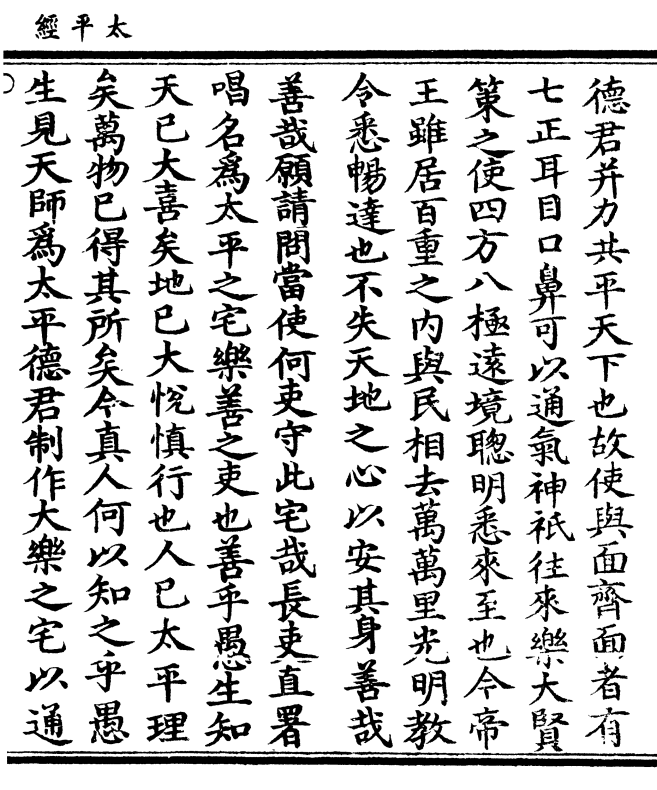 太平經
德君并力共平天下也故使與面齊面者有
七正耳目口鼻可以通氣神祇往來樂大賢
策之使四方八極遠境聰明悉來至也今帝
王雖居百重之内與民相去萬萬里光明教
令悉暢達也不失天地之心以安其身善哉
善哉願請問當使何吏守此宅哉長吏直署
唱名爲太平之宅樂善之吏也善乎愚生知
天已大喜矣地已大悅慎行也人已太平理
矣萬物已得其所矣今真人何以知之乎愚
生見天師爲太平德君制作大樂之宅以通